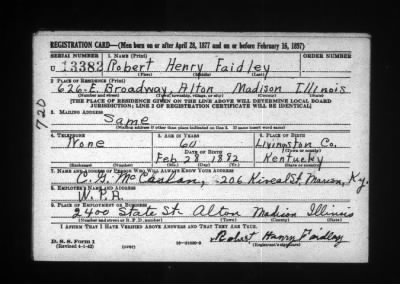 REGISTRATION CARD—(Men born on or after April 28, 1877 and on or before February 16, 1897)
SERIAL NUMBER 1. NAME (Print) ORDER NUMBER
U 13382 Robert Henry Faidley
(First) (Middle) (Last)
2. PLACE OF RESIDENCE (Print)
626-E. Broadway, Alton Madison Illinois
(Number and street) (Town, township, village, or city) (County) (State)
[THE PLACE OF RESIDENCE GIVEN ON THE LINE ABOVE WILL DETERMINE LOCAL BOARD
JURISDICTION; LINE 2 OF REGISTRATION CERTIFICATE WILL BE IDENTICAL]
720
3. MAILING ADDRESS
Same
[Mailing address if other than place indicated on line 2. If same insert word same]
4. TELEPHONE 5. AGE IN YEARS 6. PLACE OF BIRTH
None 60 Livingston Co.
DATE OF BIRTH (Town or county)
Feb 28 1882 Kentucky
(Exchange) (Number) (Mo.) (Day) (Yr.) (State or country)
7. NAME AND ADDRESS OF PERSON WHO WILL ALWAYS KNOW YOUR ADDRESS
206 St, Marion, Ky.
8. EMPLOYER'S NAME AND ADDRESS
W. P. A.
9. PLACE OF EMPLOYMENT OR BUSINESS
2400 State St. Alton Madison Illinois
(Number and street or R. F. D. number) (Town) (County) (State)
I AFFIRM THAT I HAVE VERIFIED ABOVE ANSWERS AND THAT THEY ARE TRUE.
D. S. S. Form 1
(Revised 4-1-42) (over) Robert Henry Faidley
(Registrant's signature)